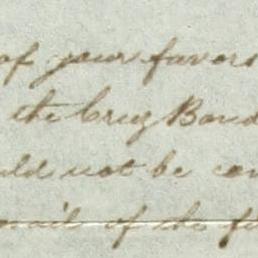 of your favors
the Cruz Bond
uld not be con
mail of the fi